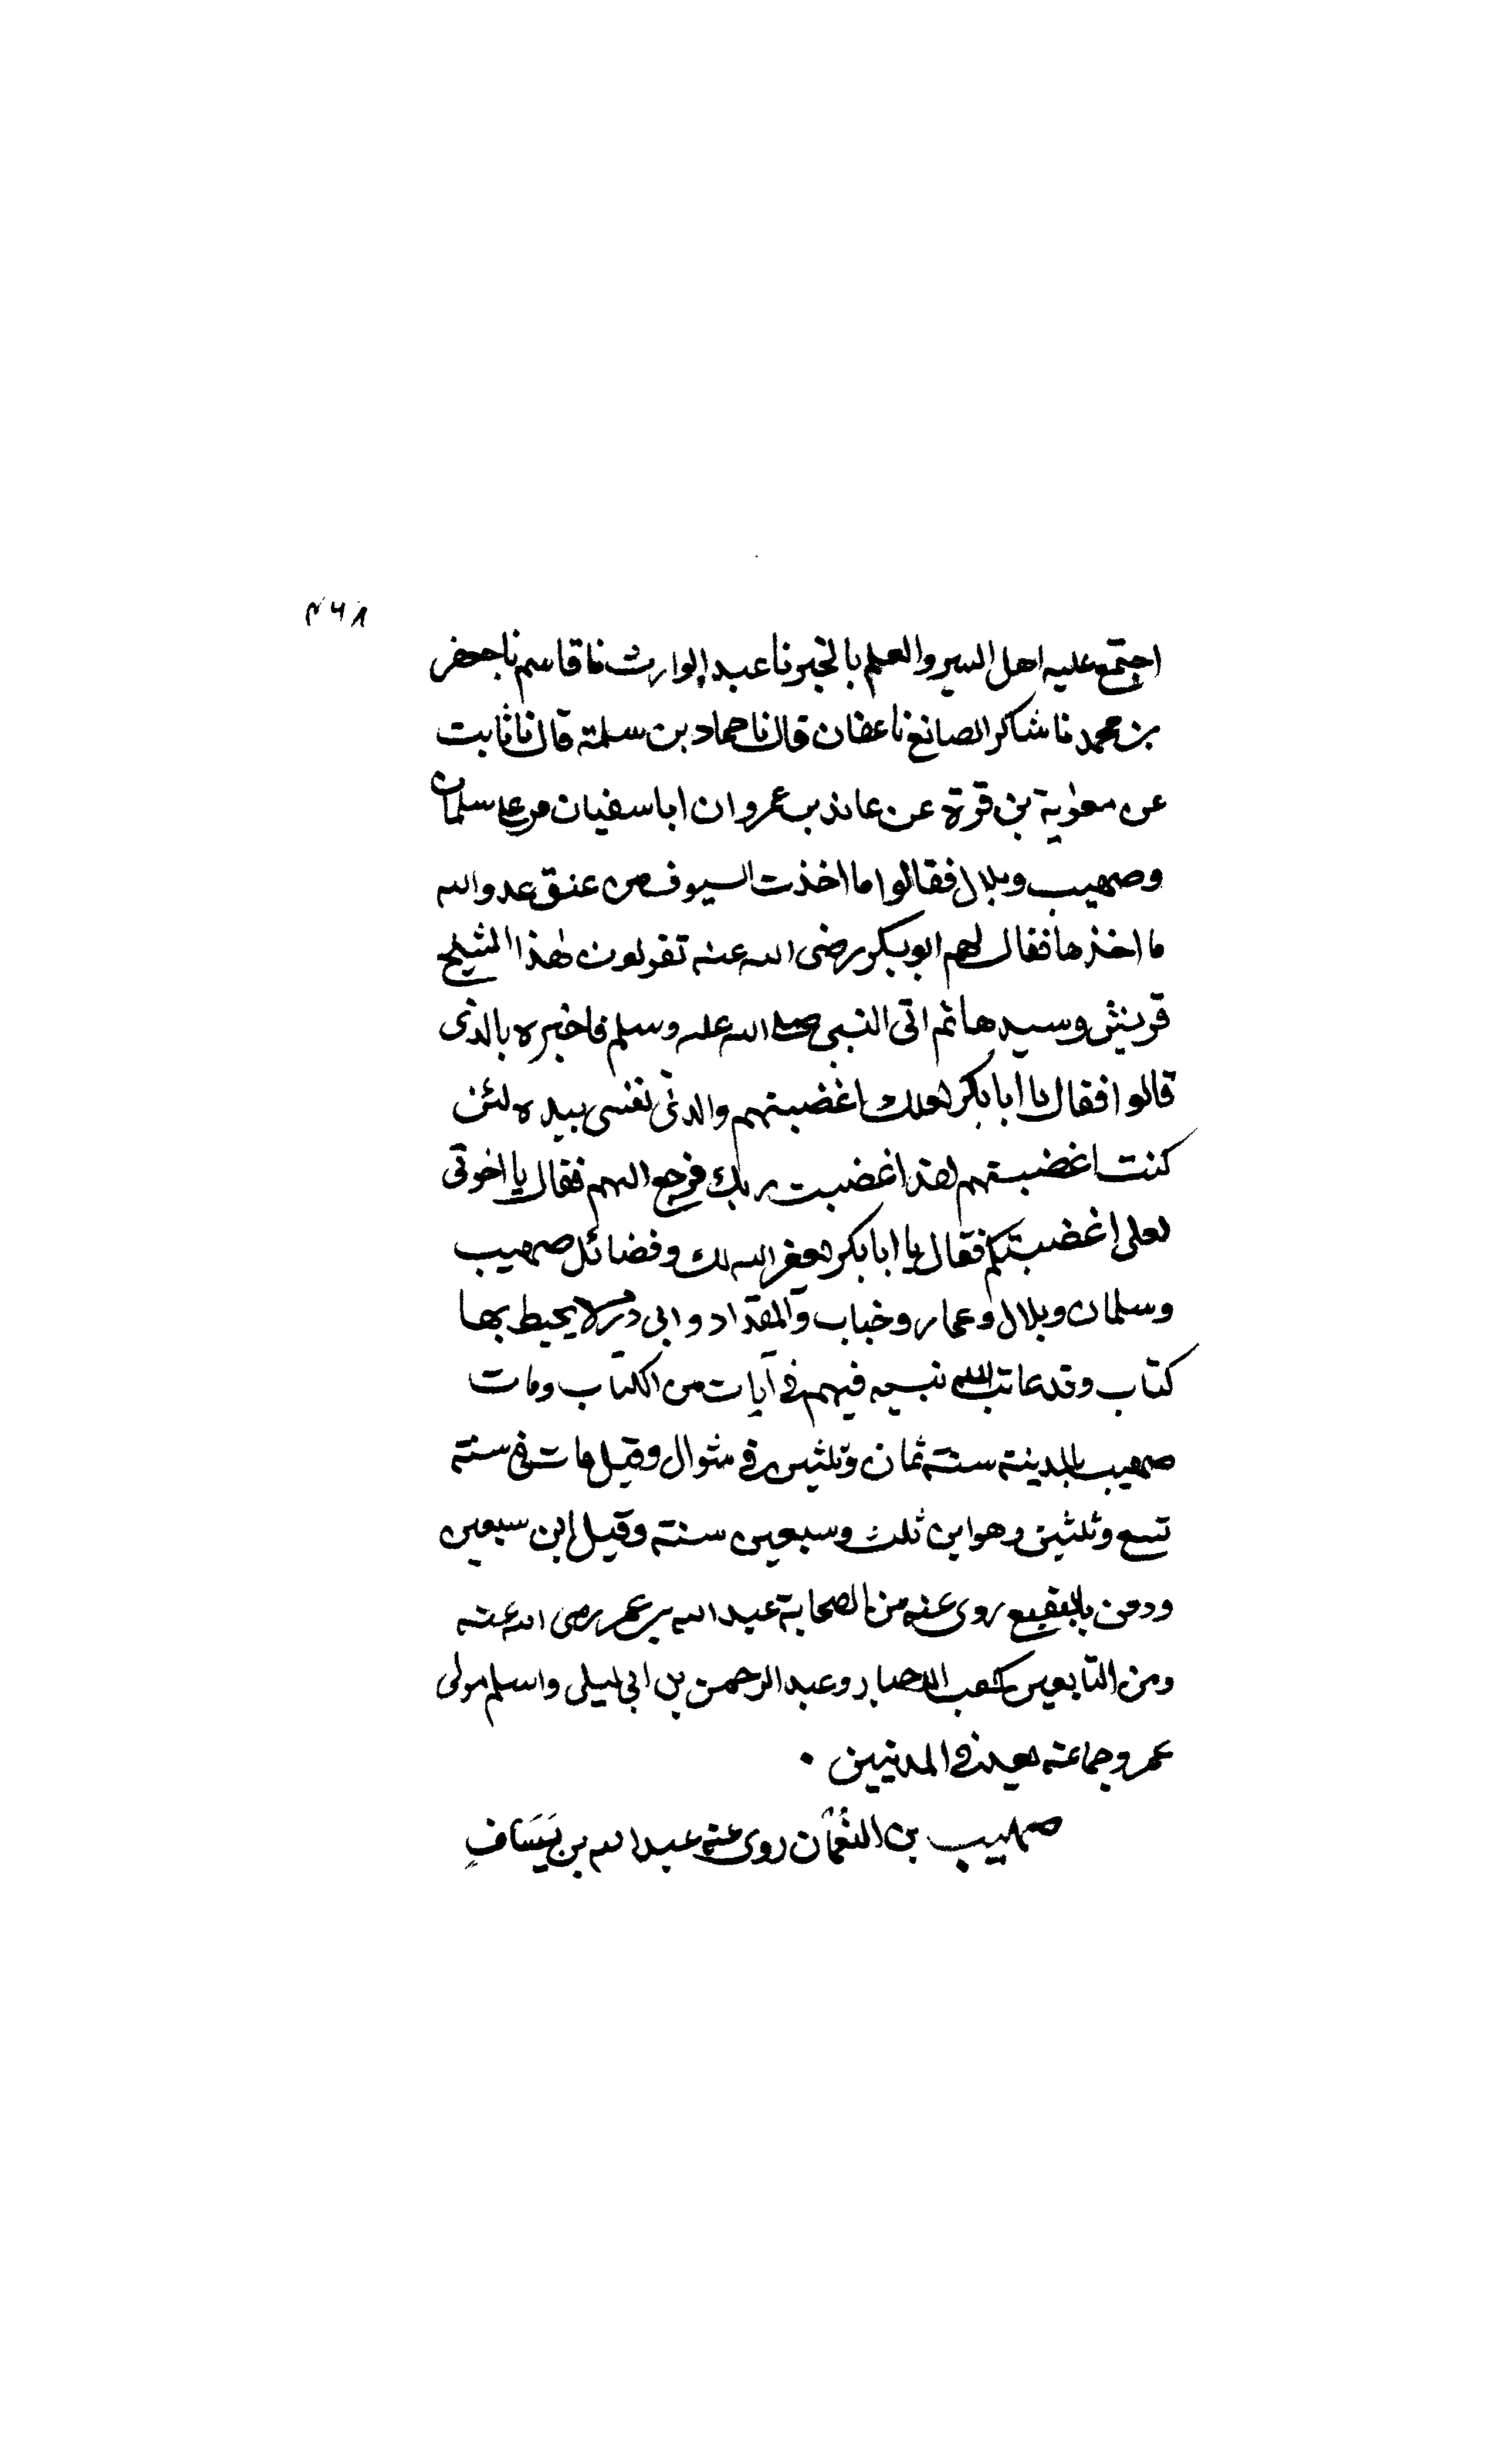 ٤٦٨
اجتمع عليه اهل السير والعلم بالخبر نا عبد الوارث نا قاسم نا جعفر
بن محمد نا شاكر الصانع نا عفان قال نا حماد بن سلمة قال نا ثابت
عن معوية بن قرة عن عائذ بن عمرو ان ابا سفيان مر على سلمان
وصهيب وبلال فقالوا ما اخذت السيوف من عنق عدو الله
ما اخذها فقال لهم ابو بكر رضى الله عنه تقولون لهذا الشيخ
قريش وسيدها ثم اتى النبي صلى الله عليه وسلم فاخبره بالذى
قالوا فقال يا ابا بكر لعلك اغضبتهم والذى نفسى بيده لئن
كنت اغضبتهم لقد اغضبت ربك فرجع اليهم فقال يا اخوتى
لعلى اغضبتكم فقال يا ابا بكر يغفر الله لك وفضائل صهيب
وسلمان وبلال وعمار وخباب والمقداد وابى ذر لا يحيط بها
كتاب وقد عاتب الله نبيه فيهم في آيات من الكتاب ومات
صهيب بالمدينة سنة ثمان وثلثين في شوال وقيل مات في سنة
تسع وثلثين وهو ابن ثلث وسبعين سنة وقيل ابن سبعين
ودفن بالبقيع روى عنه من الصحابة عبد الله بن عمر رضى الله عنه
ومن التابعين كعب الاحبار وعبد الرحمن بن ابى ليلى واسلم مولى
عمر وجماعة يعد في المدنيين .
صهيب بن النعمان روى عنه عبد الله بن يساف